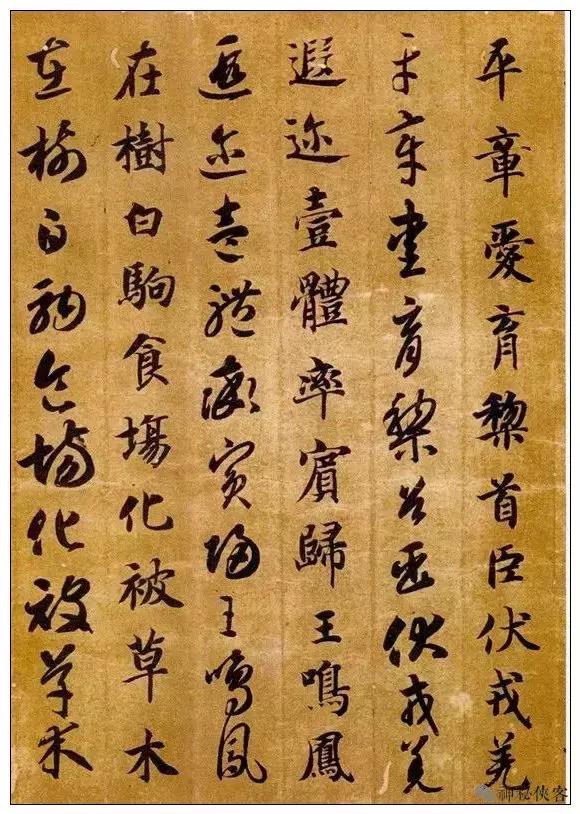 平章愛育黎首臣伏戎羌
平章愛育黎首臣伏戎羌
遐迩壹體率賓歸王鳴鳳
遐迩壹體率賓歸王鳴鳳
在樹白駒食塲化被草木
在樹白駒食場化被草木
神秘俠客